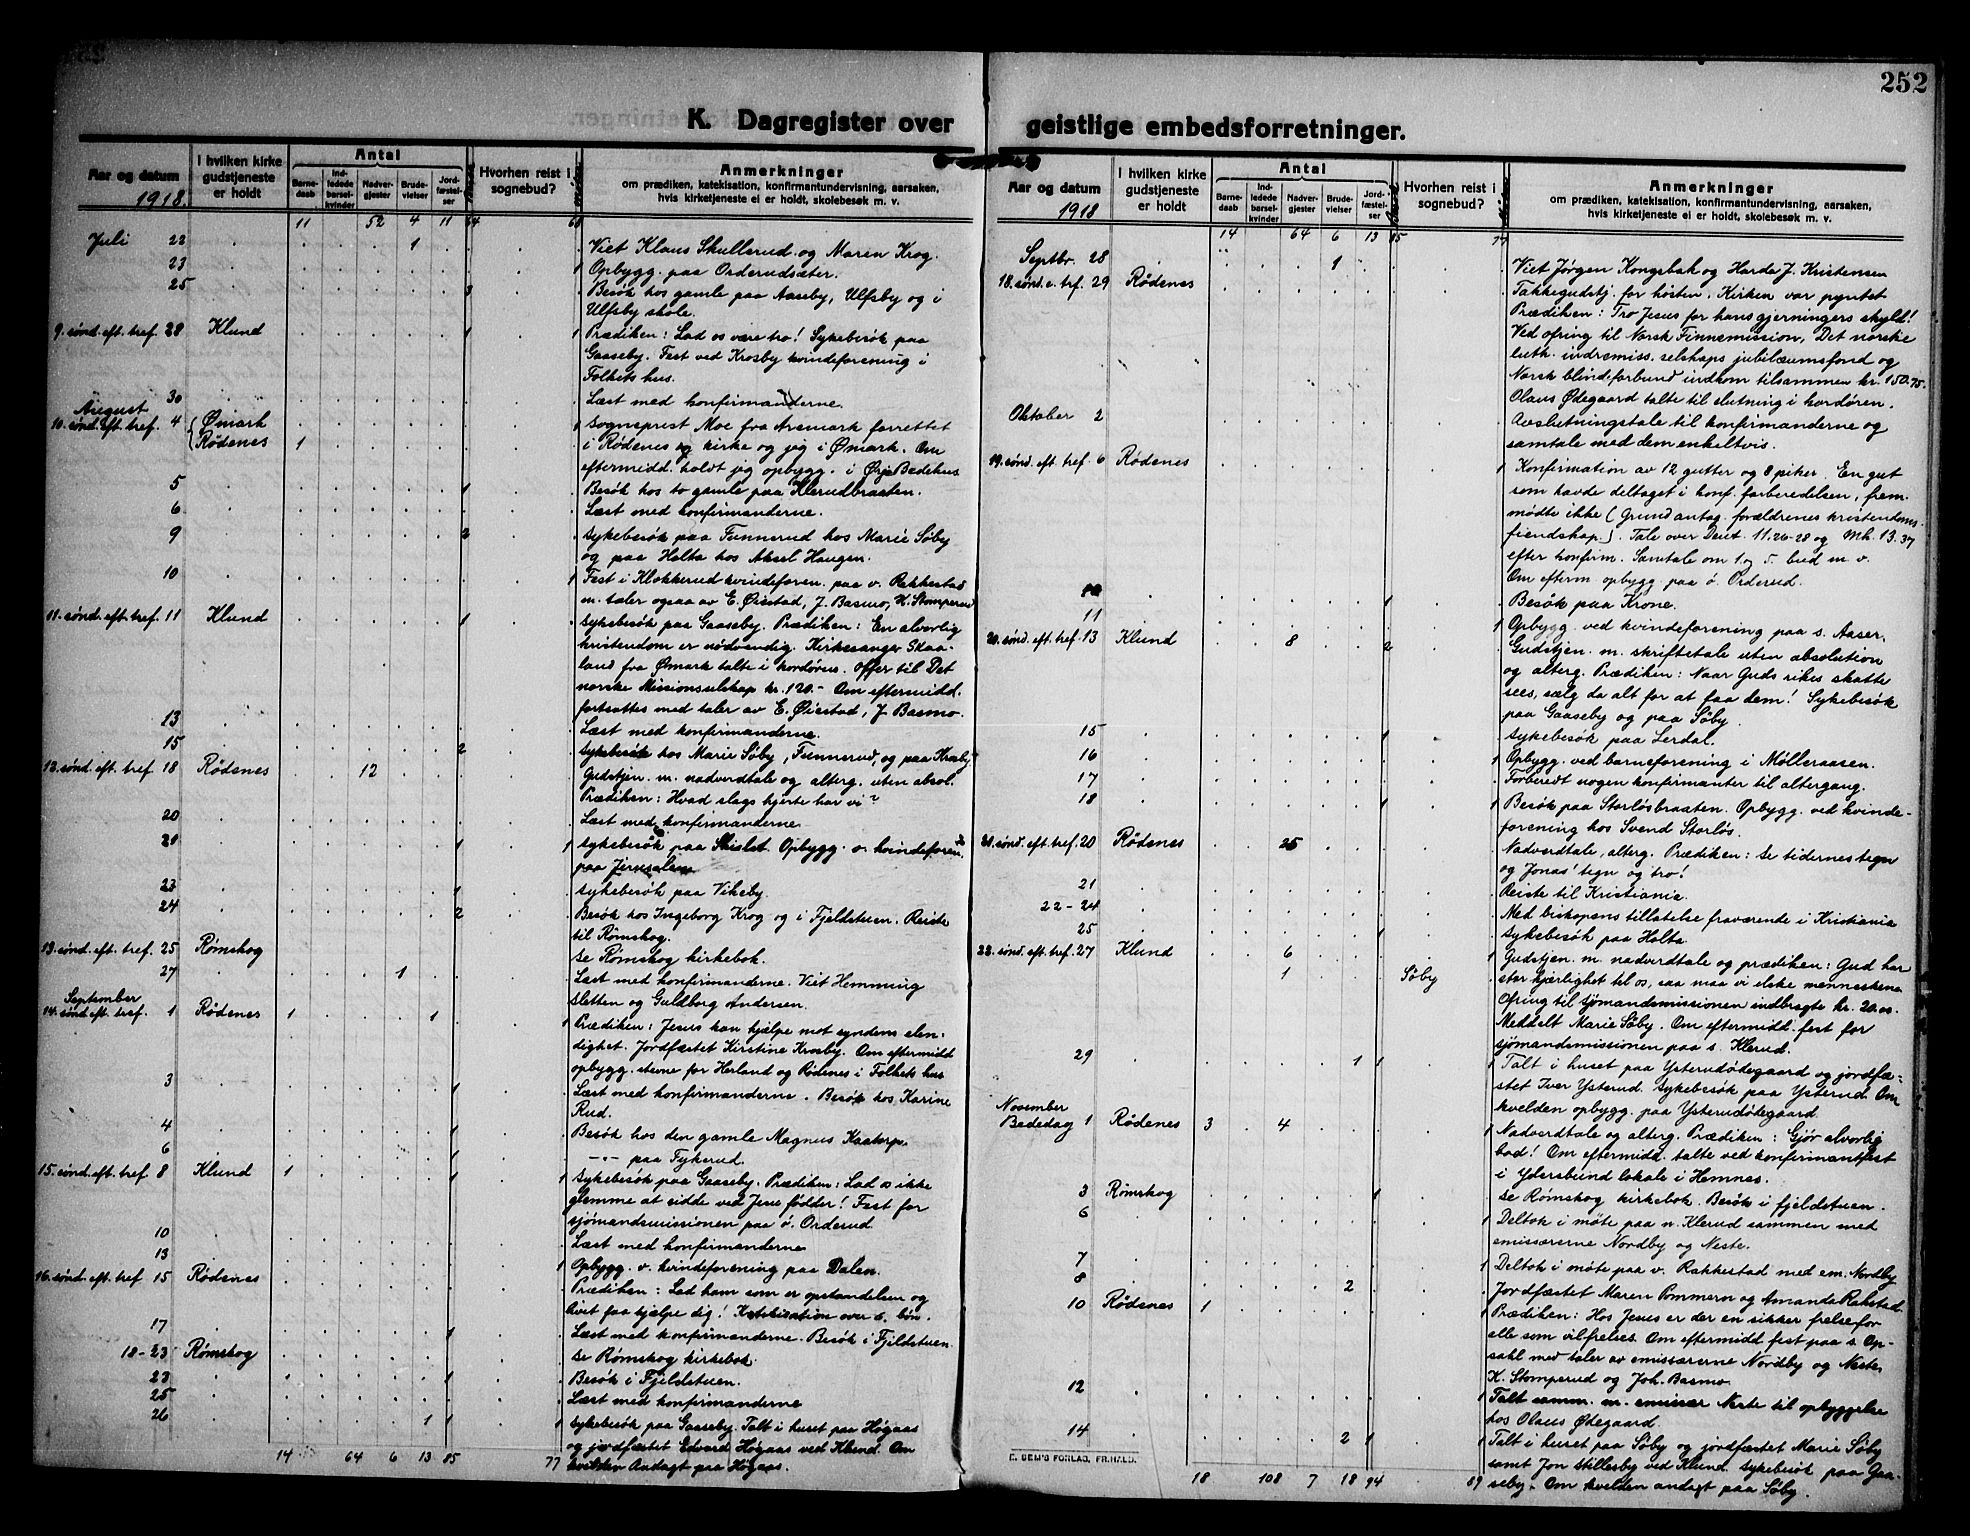 252
K. Dagregister over geistlige embedsforretninger.
Aar og datum
1918.
I hvilken kirke gudstjeneste er holdt
Antal
Barnedaab
Indledede barselkvinder
Nadvergjester
Brudevielser
Jordfæstelser
Hvorhen reist i sognebud?
Anmerkninger
om prædiken, katekisation, konfirmantundervisning, aarsaken, hvis kirketjeneste ei er holdt, skolebesøk m. v.
11 52 4 11 64 68
Juli 22 1 Viet Klaus Skullerud og Maren Krog.
23 1 Opbygg. paa Orderudsæter.
25 3 Besøk hos gamle paa Aaseby, Ulfsby og i
Ulfsby skole.
9. sønd. eft. tref. 28 Klund 1 1 Prædiken: Lad os være tro! Sykebesøk paa
Gaaseby. Fest ved Krosby kvindeforening i
Folkets hus.
30 Læst med konfirmanderne.
August
10. sønd. eft. tref. 4 Ømark 1 Sogneprest Moe fra Aremark forrettet
Rødenes 1 i Rødenes kirke og jeg i Ømark. Om
eftermidd. holdt jeg opbygg. i Ørje Bedehus
5 1 Besøk hos to gamle paa Klerudbraaten.
6 Læst med konfirmanderne.
9 2 Sykebesøk paa Funnerud hos Marie Søby
og paa Holta hos Aksel Haugen.
10 1 Fest i Klokkerud kvindeforen. paa v. Rakkestad
m. taler ogsaa av E. Øiestad, J. Basmo, H. Stomperud
11. sønd. eft. tref. 11 Klund 1 Sykebesøk paa Gaaseby. Prædiken: En alvorlig
kristendom er nødvendig. Kirkesanger Skaa-
land fra Ømark talte i kordøren. Offer til Det
norske Missionsselskap kr. 120.- Om eftermidd.
fortsattes med taler av E. Øiestad, J. Basmo.
13 Læst med konfirmanderne.
15 2 Sykebesøk hos Marie Søby, Funnerud, og paa Krosby
12. sønd. eft. tref. 18 Rødenes 12 Gudstjen. m. nadverdtale og alterg. uten absol.
Prædiken: Hvad slags hjerte har vi?
20 Læst med konfirmanderne
21 1 1 Sykebesøk paa Skislet. Opbygg. v. kvindeforen.
paa Jerusalem
23 1 Sykebesøk paa Vikeby.
24 2 Besøk hos Ingeborg Krog og i Fjeldstuen. Reiste
til Rømskog.
13. sønd. eft. tref. 25 Rømskog Se Rømskog kirkebok.
27 1 Læst med konfirmanderne. Viet Hemming
Sletten og Guldborg Andersen.
September
14. sønd. eft. tref. 1 Rødenes 1 1 1 Prædiken: Jesus kan hjælpe mot syndens elen-
dighet. Jordfæstet Kirstine Krosby. Om eftermidd
opbygg. stevne for Herland og Rødenes i Folkets hus
3 1 Læst med konfirmanderne. Besøk hos Karine
Rud.
4 1 Besøk hos den gamle Magnus Kaatorp.
6 1 -"- paa Tykerud.
15. sønd. eft. tref. 8 Klund 1 1 1 Sykebesøk paa Gaaseby. Prædiken: Lad os ikke
glemme at sidde ved Jesu fødder! Fest for
sjømandsmissionen paa ö. Orderud
10 Læst med konfirmanderne
13 1 Opbygg. v. kvindeforening paa Dalen.
16. sønd. eft. tref. 15 Rødenes Prædiken: Lad ham som er opstandelsen og
livet faa hjælpe dig! Katekisation over 6. bön.
17 1 Læst med konfirmanderne. Besøk i Fjeldstuen.
18-23 Rømskog Se Rømskog kirkebok.
23 1 Besøk i Fjeldstuen.
25 Læst med konfirmanderne
26 1 1 1 Sykebesøk paa Gaaseby. Talt i huset paa Högaas
og jordfæstet Edvard Högaas ved Klund. Om
kvelden andagt paa Högaas.
14 64 6 13 85 77
Aar og datum
1918
I hvilken kirke gudstjeneste er holdt
Antal
Barnedaab
Indledede barselkvinder
Nadvergjester
Brudevielser
Jordfæstelser
Hvorhen reist i sognebud?
Anmerkninger
om prædiken, katekisation, konfirmantundervisning, aarsaken, hvis kirketjeneste ei er holdt, skolebesøk m. v.
14 64 6 13 85 77
Septbr. 28 1 Viet Jørgen Kongsbak og Harda J. Kristensen
18. sønd. e. tref. 29 Rødenes Takkegudstj. for høsten. Kirken var pyntet
Prædiken: Tro Jesus for hans gjerningers skyld!
Ved ofring til Norsk Finnemission, Det norske
luth. indremiss. selskaps jubilæumsfond og
Norsk blindeforbund indkom tilsammen kr. 150.75.
Olaus Ødegaard talte til slutning i kordøren.
Oktober 2 Avslutningstale til konfirmanderne og
samtale med dem enkeltvis.
19. sønd. eft. tref. 6 Rødenes 1 Konfirmation av 12 gutter og 8 piker. En gut
som havde deltaget i konf. forberedelsen, frem-
mødte ikke (Grund antag. forældrenes kristendoms-
fiendskap). Tale over Deut. 11.26-28 og Mk. 13.37
efter konfirm. Samtale om 1. og 5. bud m. v.
Om efterm. opbygg. paa ö. Orderud.
10 1 Besøk paa Krone.
11 1 Opbygg. ved kvindeforening paa s. Aaser.
20. sønd. eft. tref. 13 Klund 8 2 Gudstjen. m. skriftetale uten absolution
og alterg. Prædiken: Naar Guds rikes skatte
sees, sælg da alt for at faa dem! Sykebesøk
paa Gaaseby og paa Søby.
15 1 Sykebesøk paa Lerdal.
16 1 Opbygg. ved barneforening i Mölleraasen.
17 Forberedt nogen konfirmanter til altergang.
18 1 1 Besøk paa Storlösbraaten. Opbygg. ved kvinde-
forening hos Svend Storlös.
21. sønd. eft. tref. 20 Rødenes 25 Nadverdtale, alterg. Prædiken: Se tidernes tegn
og Jonas' tegn og tro!
21 Reiste til Kristiania.
22-24 Med biskopens tillatelse fraværende i Kristiania
25 1 Sykebesøk paa Holta
22. sønd. eft. tref. 27 Klund 6 1 Gudstjen. m. nadverdtale og prædiken: Gud har
1 Søby stor kjærlighet til os, saa maa vi elske menneskene.
Ofring til sjømandsmissionen indbragte kr. 20.00
Meddelt Marie Søby. Om eftermidd. fest for
sjømandsmissionen paa s. Klerud.
29 1 1 1 Talt i huset paa Ysterudødegaard og jordfæ-
stet Iver Ysterud. Sykebesøk paa Ysterud. Om
kvelden opbygg. paa Ysterudødegaard.
November
Bededag 1 Rødenes 3 4 1 Nadverdtale og alterg. Prædiken: Gjør alvorlig
bod! Om eftermidd. talte ved konfirmantfest
i Ydersbund lokale i Hemnes.
3 Rømskog 1 Se Rømskog kirkebok. Besøk i fjeldstuen.
6 1 Deltok i møte paa n. Klerud sammen med
emissærerne Nordby og Neste.
7 1 Deltok i møte paa v. Rakkestad med em. Nordby
8 2 Jordfæstet Maren Pommern og Amanda Rakstad.
10 Rødenes 1 1 Prædiken: Hos Jesus er der en sikker frelse for
alle som vil frelses. Om eftermidd fest paa s. Op-
sahl med taler av emissærerne Nordby og Neste,
H. Stomperud og Joh. Basmo.
12 1 Talt samm. m. emissær Neste til opbyggelse
hos Olaus Ødegaard.
14 2 1 1 Talt i huset paa Søby og jordfæstet Marie Søby
samt Jon Stillesby ved Klund. Sykebesøk paa Gaa-
seby. Om kvelden andagt paa Søby.
E. SEM'S FORLAG, FR.HALD.
18 108 7 18 94 89